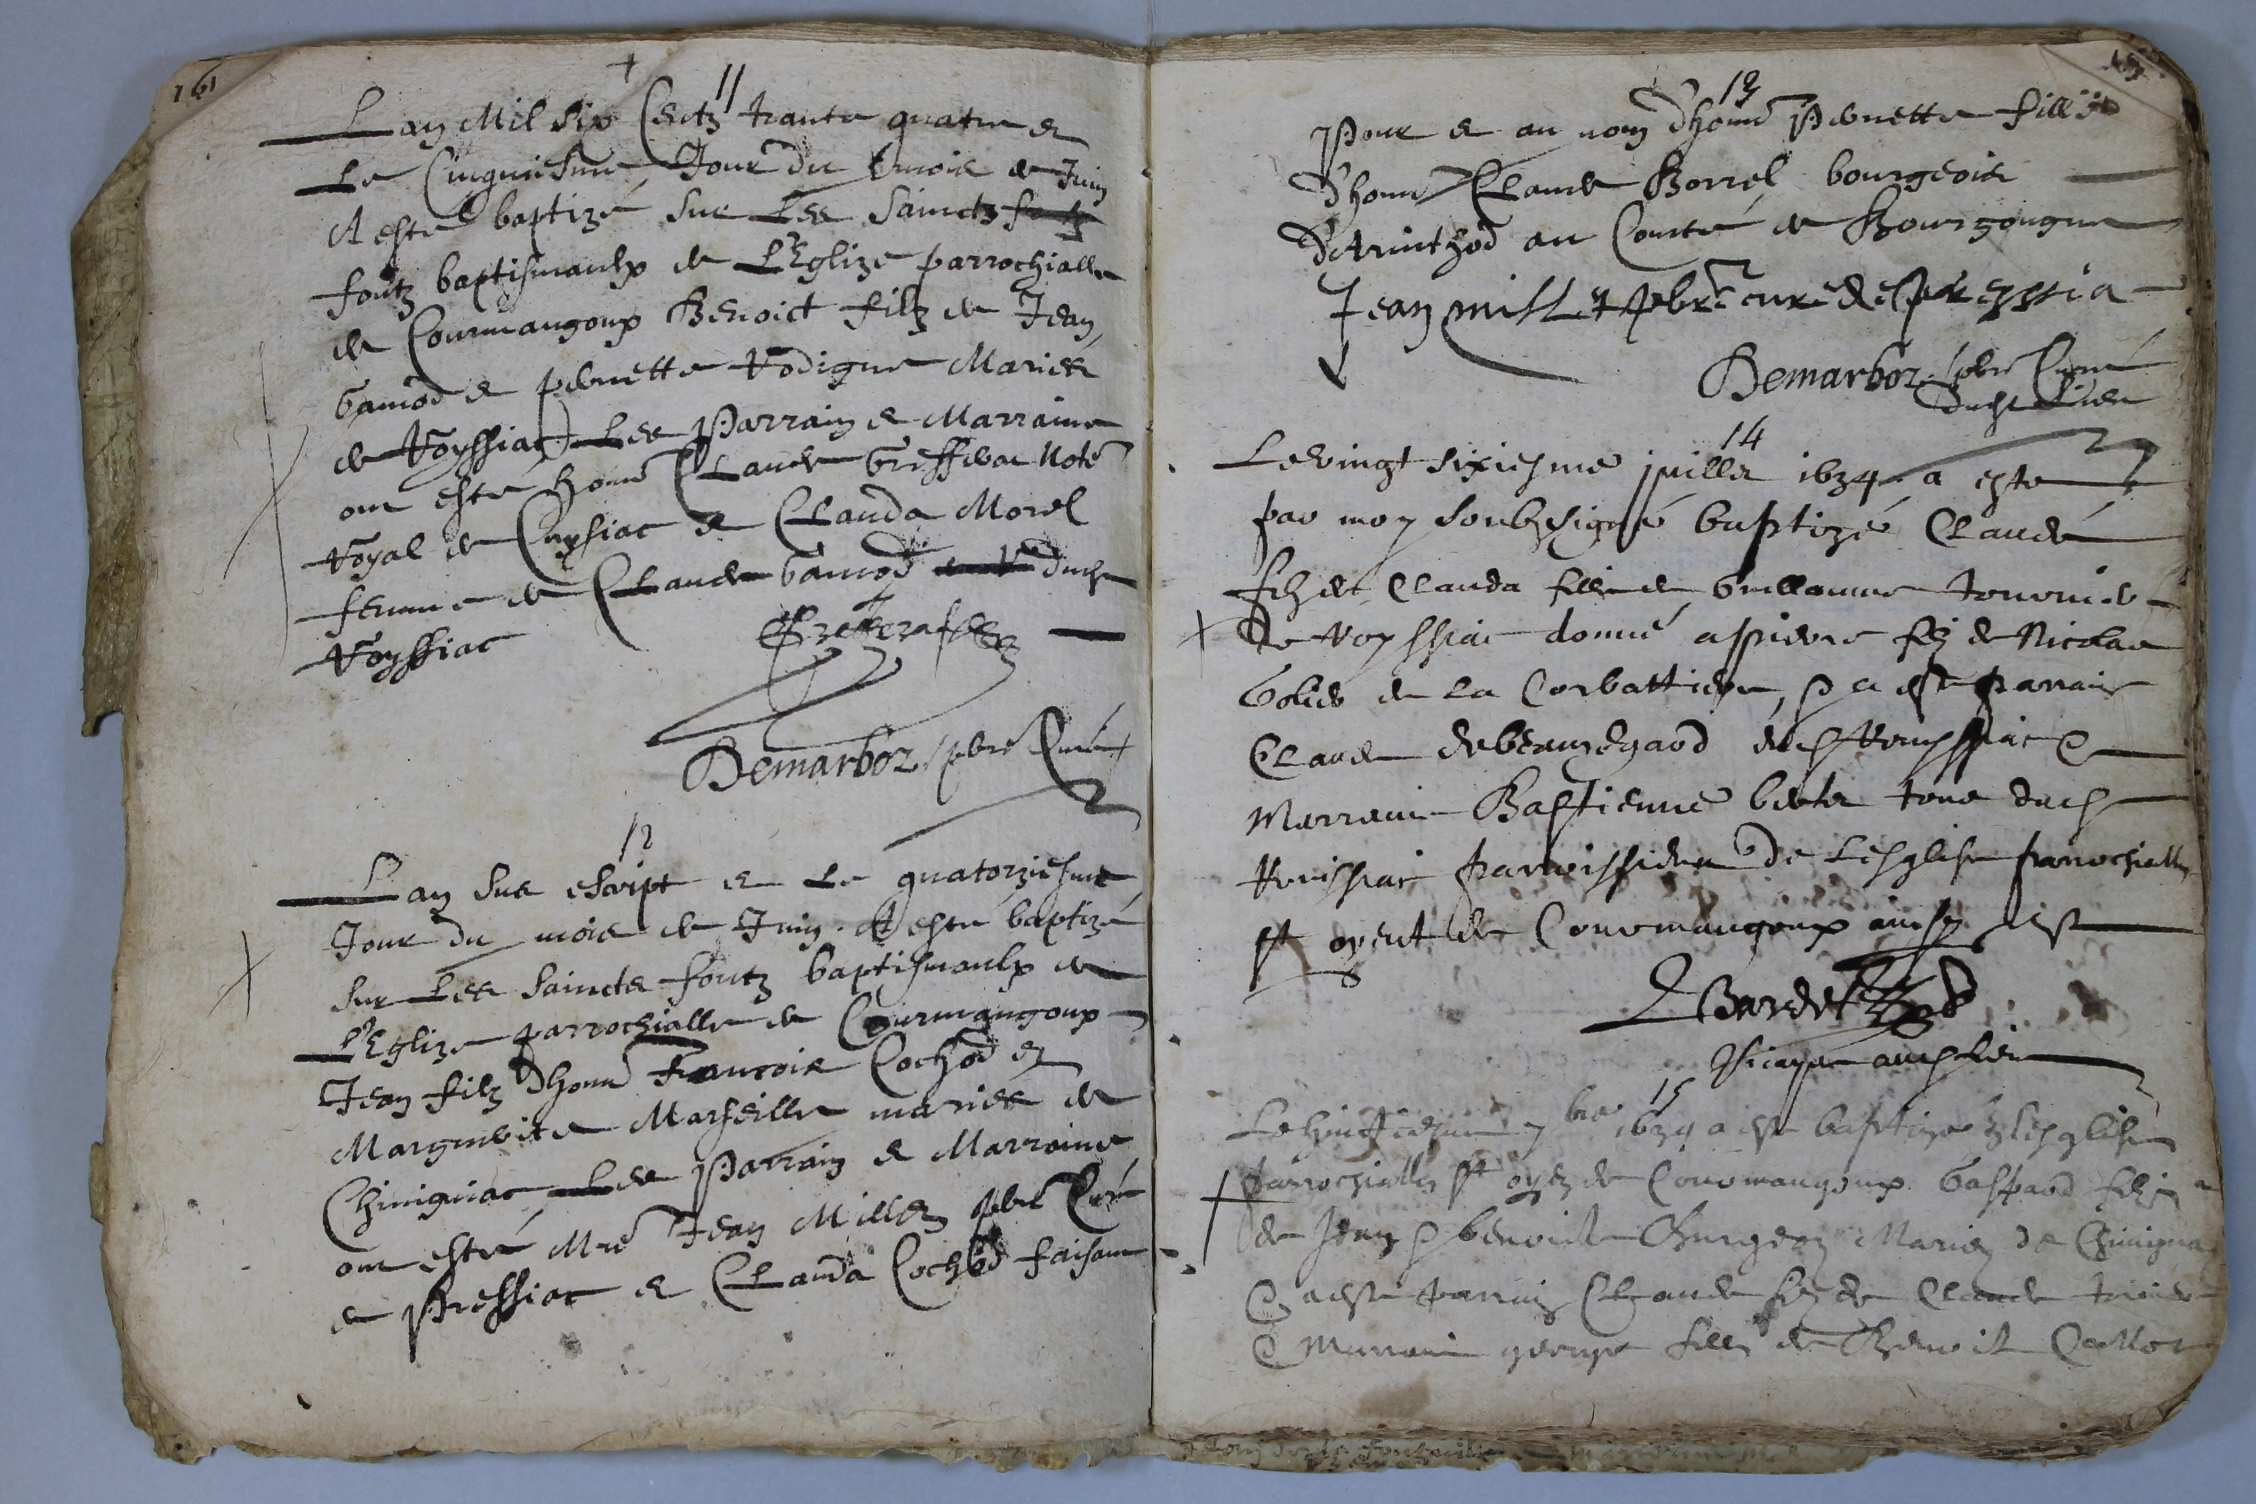 161
11
Lan Mil six Centz trante quatre et
Le Cinquiesme Jour du mois de Juin
A esté baptizé sur Les Sainctz
fontz baptismaulx de L'Eglize parrochialle
de Courmangoux Benoict filz de Jean
Gamod et pernette Rodigue Mariés
de Royssiac Les Parrain et Marraine
ont esté honn Claude Greffera Note
Royal de Cuysiac et Clauda Morel
femme de Claude Gamod duch
Royssiac
Demarboz pbre Curé
12
Lan sus escript et le quatorziesme
Jour du mois de Juin A esté baptizé
sur Les Saincts fontz baptismaulx de
L'Eglize parrochialle de Courmangoux
Jean filz dhonn Francois Cochod et
Marguerite Marseille mariés de
Chinignac Les Parrain et Marraine
ont esté Mre Jean Millet pbre Curé
de Pressiac et Clauda Cochod faisant
13
Pour et au nom dhonn Pernette fillie
dhonn Claude Borrel bourgeois
d'Arinthod au Conté de Bourgongne
Jean millet pbre curé de pressia
Demarboz pbre Curé
dudt Lieu
14
Le vingt sixiesme juillet 1634 a este
par moy soubzsigné baptizé Claude
filz de Clauda fille de Guillaume
de Royssiac donné a pierre filz de Nicolas
de La Corbattiere, & a este parrain
Claude debeauregard &
Marraine Bastienne
Roissiac parroissiens de Lesglise parrochialle
st oyent de Courmangoux ainsy est
Vicayre audt Lieu
15
Le huictiesme 7bre 1634 a este baptize lesglise
parrochialle st oyen de Courmangoux Gaspard filz
de Jean & benoiste Mariez de Chinigna
& a este parrain Claude filz de Claude
& Marraine fille de Benoist